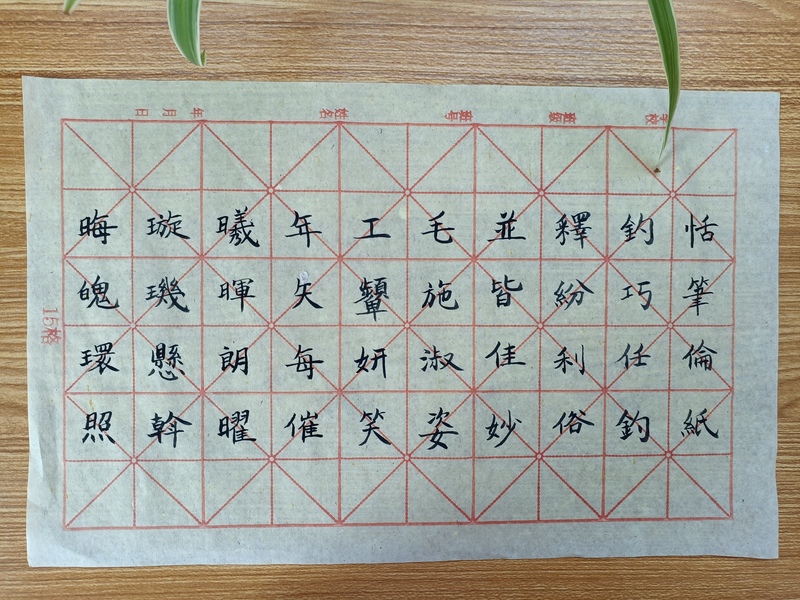 恬筆倫紙
鈞巧任釣
釋紛利俗
並皆佳妙
毛施淑姿
工顰妍笑
年矢每催
曦暉朗曜
璇璣懸斡
晦魄環照
学校 班级 姓名 年月日
15格